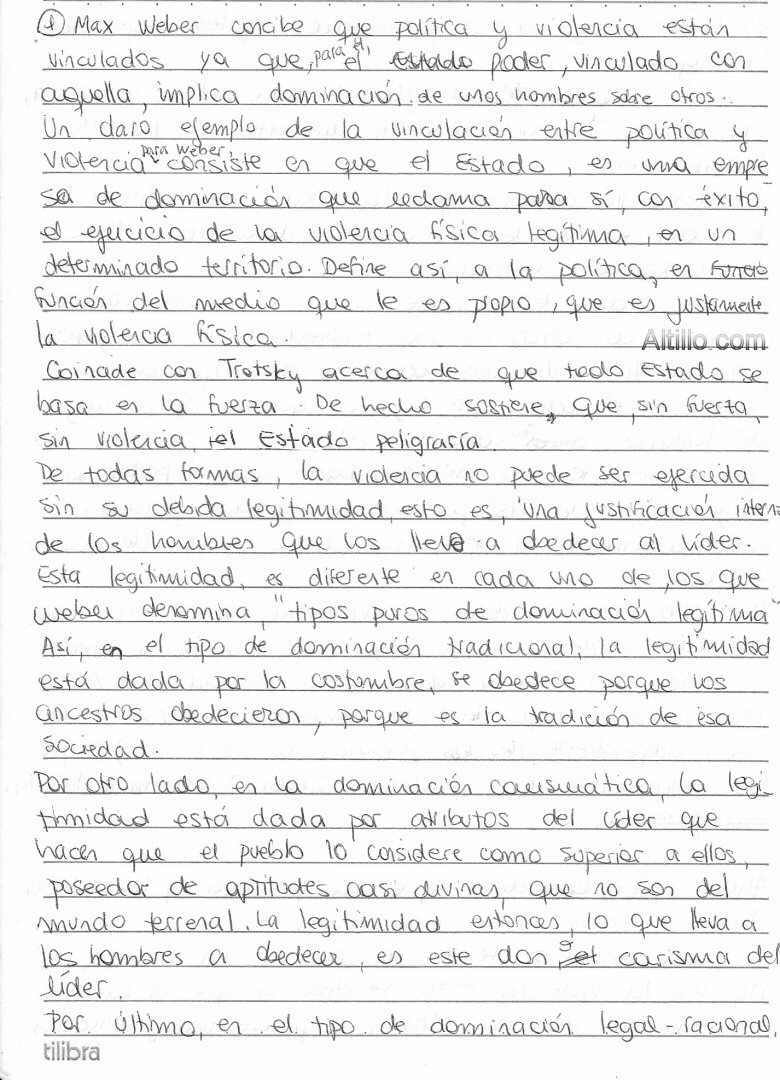 ① Max Weber concibe que política y violencia están
vinculados ya que, para él, el Estado poder, vinculado con
aquella, implica dominación de unos hombres sobre otros.
Un claro ejemplo de la vinculación entre política y
violencia para Weber, consiste en que el Estado, es una empre
sa de dominación que reclama para sí, con éxito,
el ejercicio de la violencia física legítima, en un
determinado territorio. Define así, a la política, en
función del medio que le es propio, que es justamente
la violencia física.
Altillo.com
Coincide con Trotsky acerca de que todo Estado se
basa en la fuerza. De hecho sostiene, que, sin fuerza,
sin violencia, el Estado peligraría.
De todas formas, la violencia no puede ser ejercida
sin su debida legitimidad, esto es, una justificación interna
de los hombres que los lleve a obedecer al líder.
Esta legitimidad, es diferente en cada uno de los que
Weber denomina, "tipos puros de dominación legítima"
Así, en el tipo de dominación tradicional, la legitimidad
está dada por la costumbre, se obedece porque los
ancestros obedecieron, porque es la tradición de esa
sociedad.
Por otro lado, en la dominación carismática, la legi
timidad está dada por atributos del líder que
hacen que el pueblo lo considere como superior a ellos,
poseedor de aptitudes casi divinas, que no son del
mundo terrenal. La legitimidad entonces, lo que lleva a
los hombres a obedecer, es este don o carisma del
líder.
Por último, en el tipo de dominación legal-racional,
tilibra